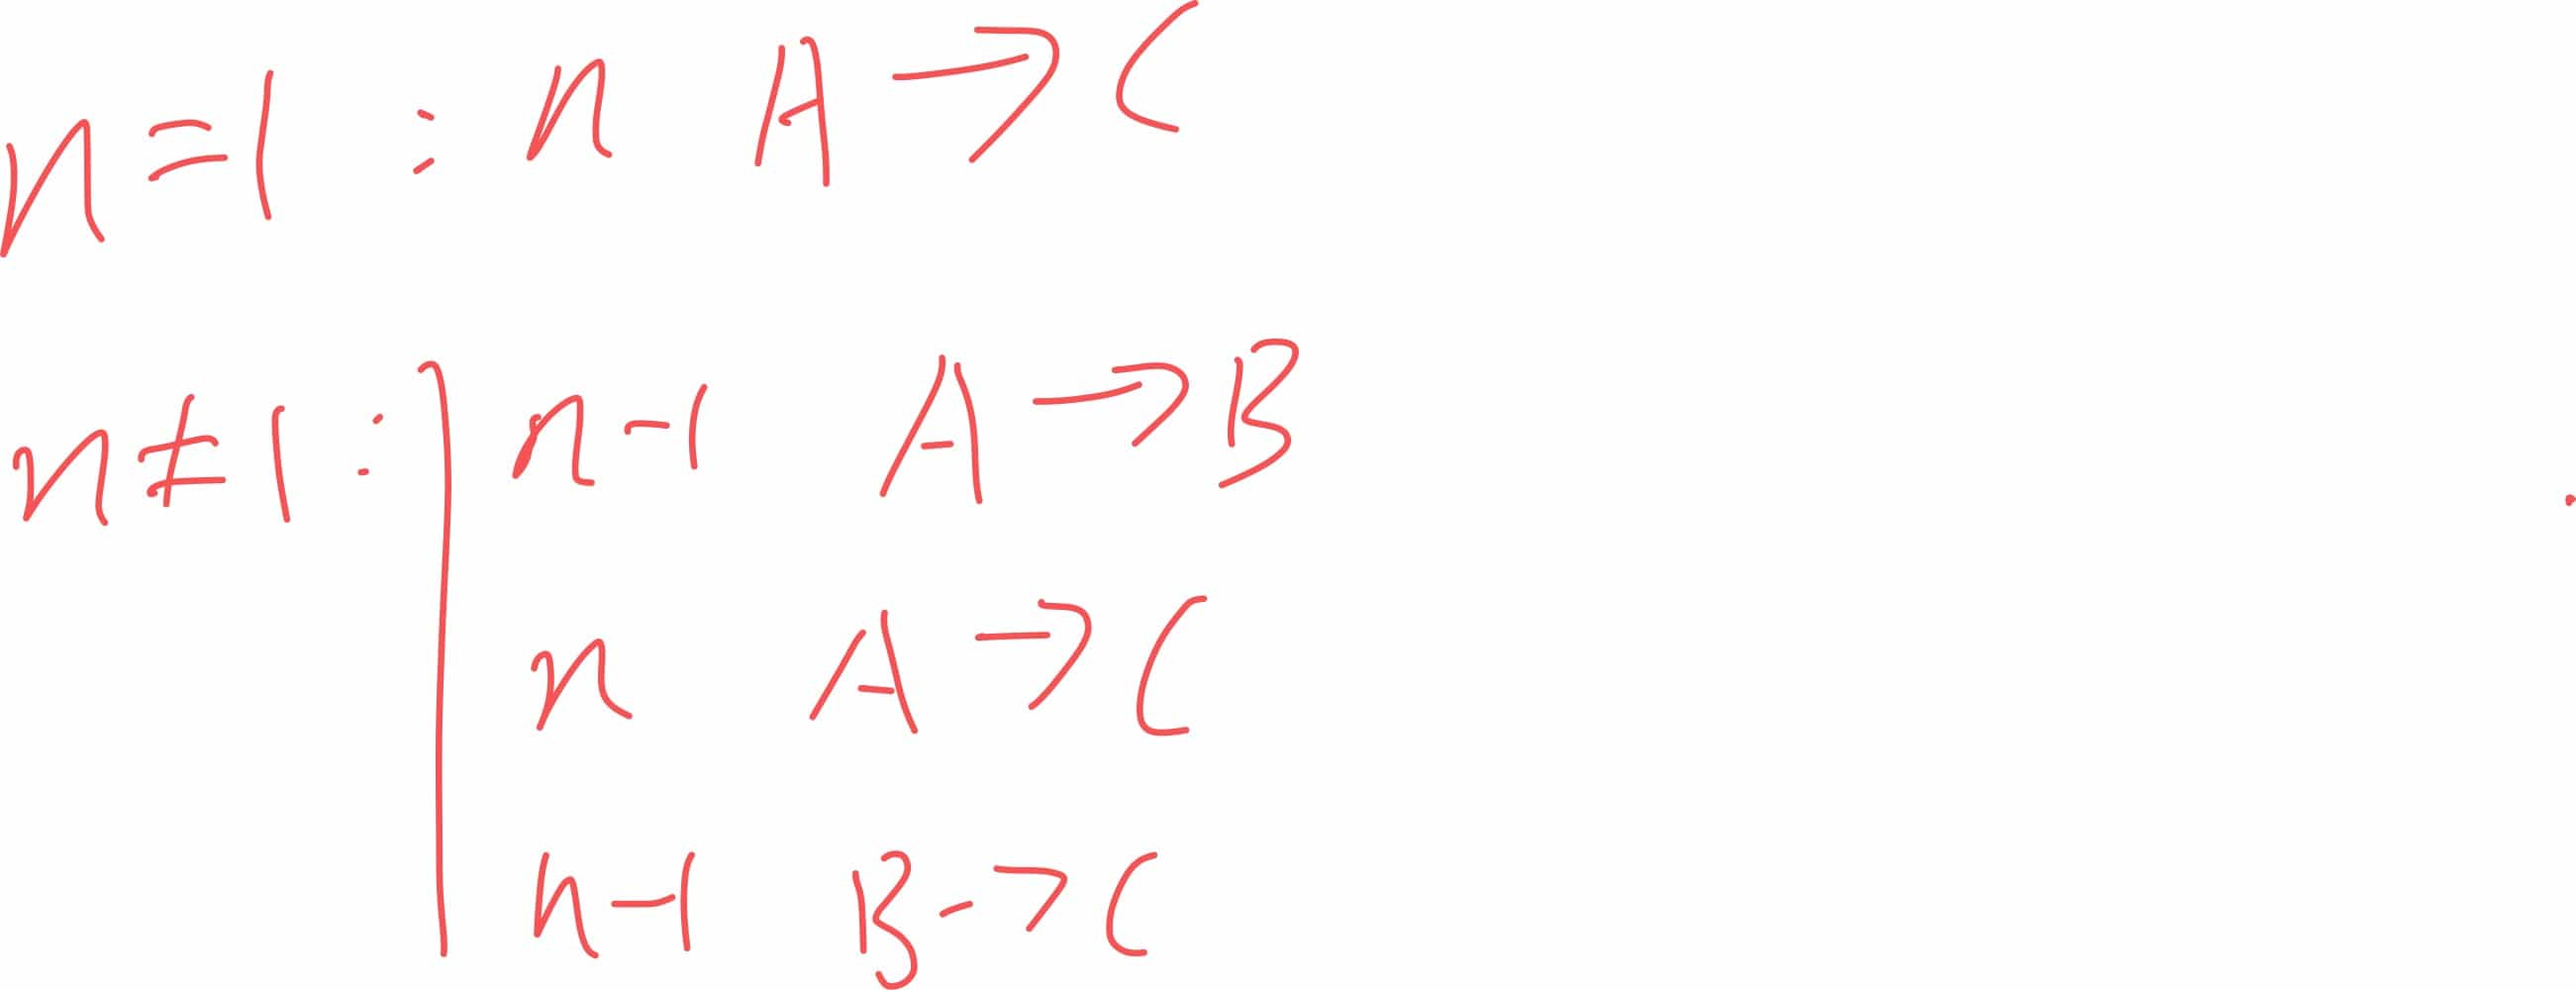 n=1 : n A→C
n≠1 : n-1 A→B
n A→C
n-1 B→C